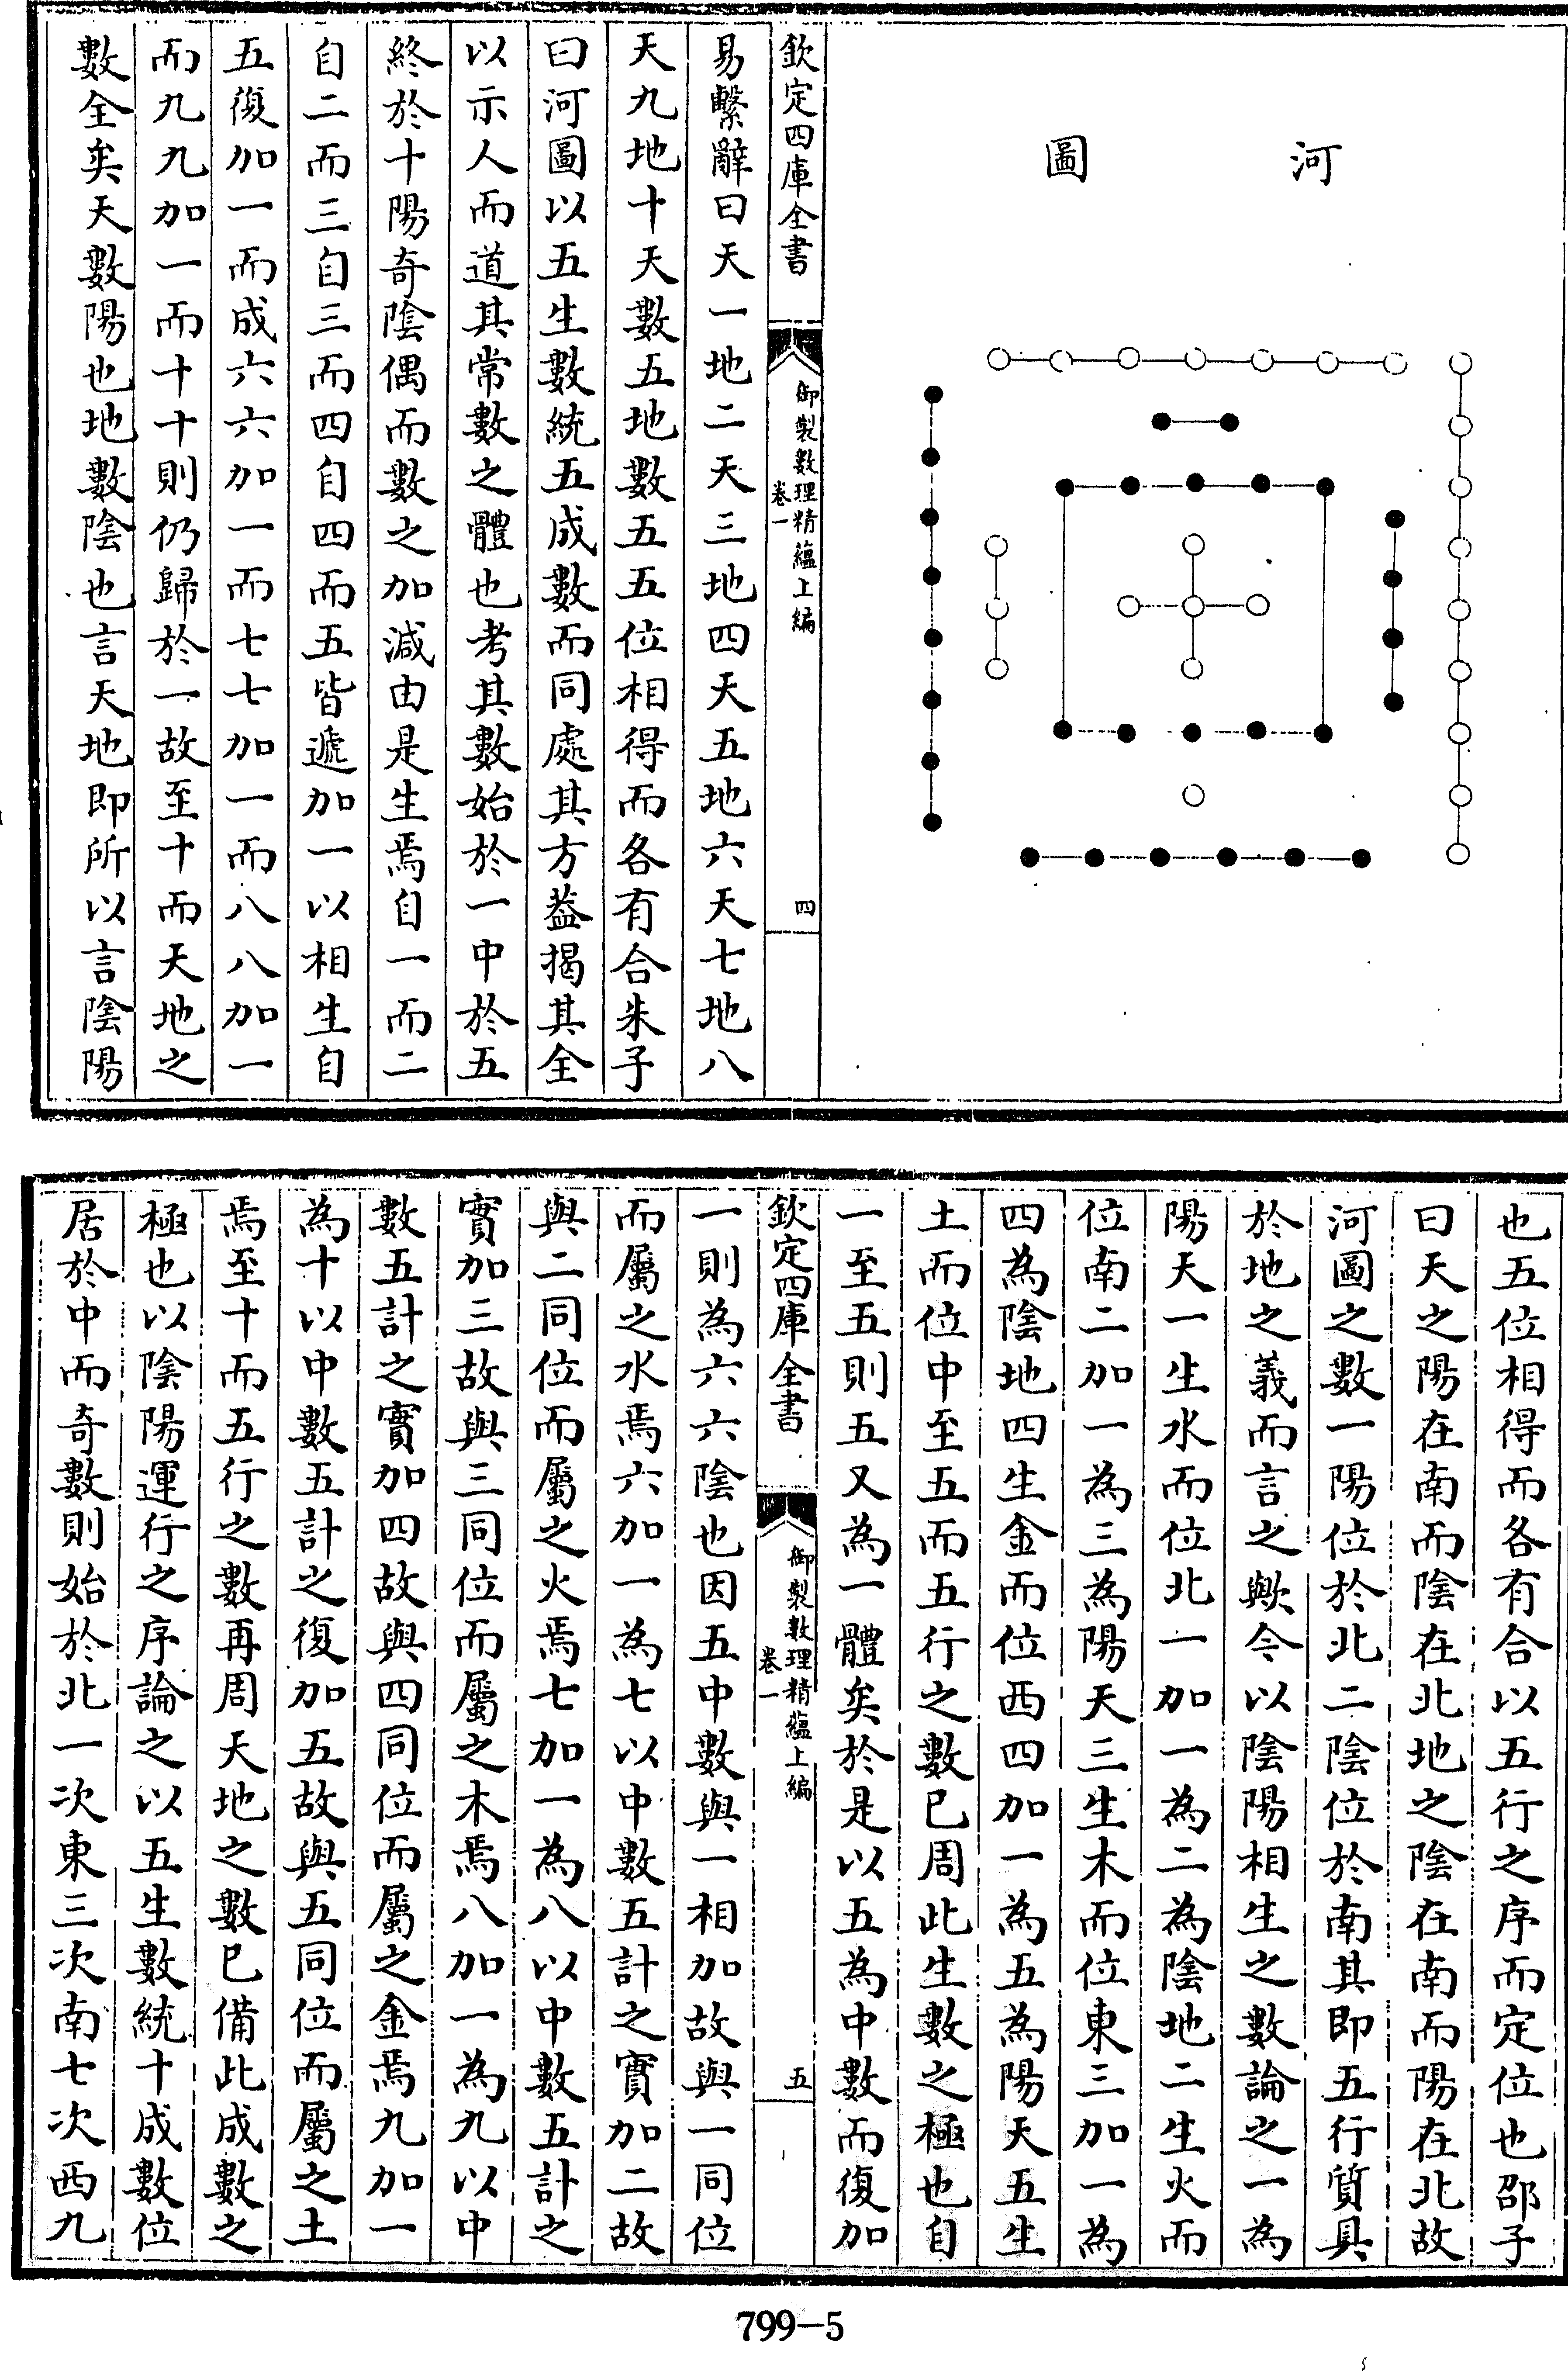 河圖
欽定四庫全書
御製數理精蘊上編
卷一
四
易繫辭曰天一地二天三地四天五地六天七地八
天九地十天數五地數五五位相得而各有合朱子
曰河圖以五生數統五成數而同處其方葢揭其全
以示人而道其常數之體也考其數始於一中於五
終於十陽奇陰偶而數之加減由是生焉自一而二
自二而三自三而四自四而五皆遞加一以相生自
五復加一而成六六加一而七七加一而八八加一
而九九加一而十十則仍歸於一故至十而天地之
數全矣天數陽也地數陰也言天地即所以言陰陽
也五位相得而各有合以五行之序而定位也邵子
曰天之陽在南而陰在北地之陰在南而陽在北故
河圖之數一陽位於北二陰位於南其即五行質具
於地之義而言之歟今以陰陽相生之數論之一為
陽天一生水而位北一加一為二為陰地二生火而
位南二加一為三為陽天三生木而位東三加一為
四為陰地四生金而位西四加一為五為陽天五生
土而位中至五而五行之數已周此生數之極也自
一至五則五又為一體矣於是以五為中數而復加
欽定四庫全書
御製數理精蘊上編
卷一
五
一則為六六陰也因五中數與一相加故與一同位
而屬之水焉六加一為七以中數五計之實加二故
與二同位而屬之火焉七加一為八以中數五計之
實加三故與三同位而屬之木焉八加一為九以中
數五計之實加四故與四同位而屬之金焉九加一
為十以中數五計之復加五故與五同位而屬之土
焉至十而五行之數再周天地之數已備此成數之
極也以陰陽運行之序論之以五生數統十成數位
居於中而奇數則始於北一次東三次南七次西九
799-5